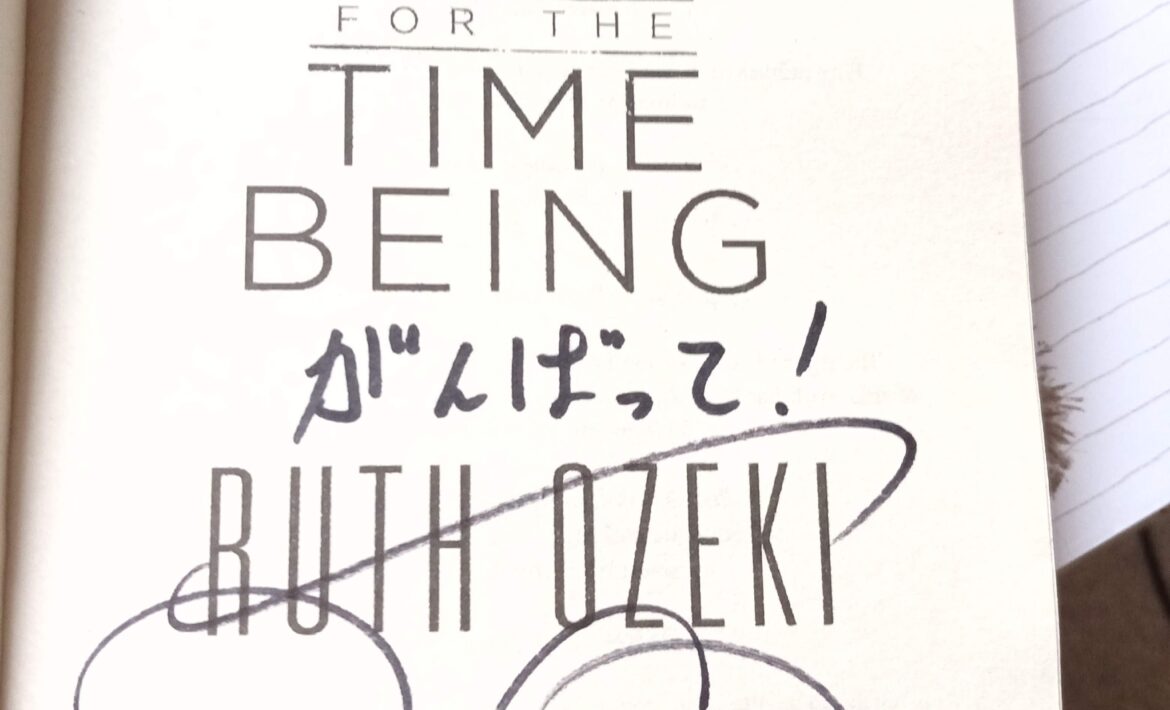 FOR THE
TIME
BEING
がんばって!
RUTH OZEKI